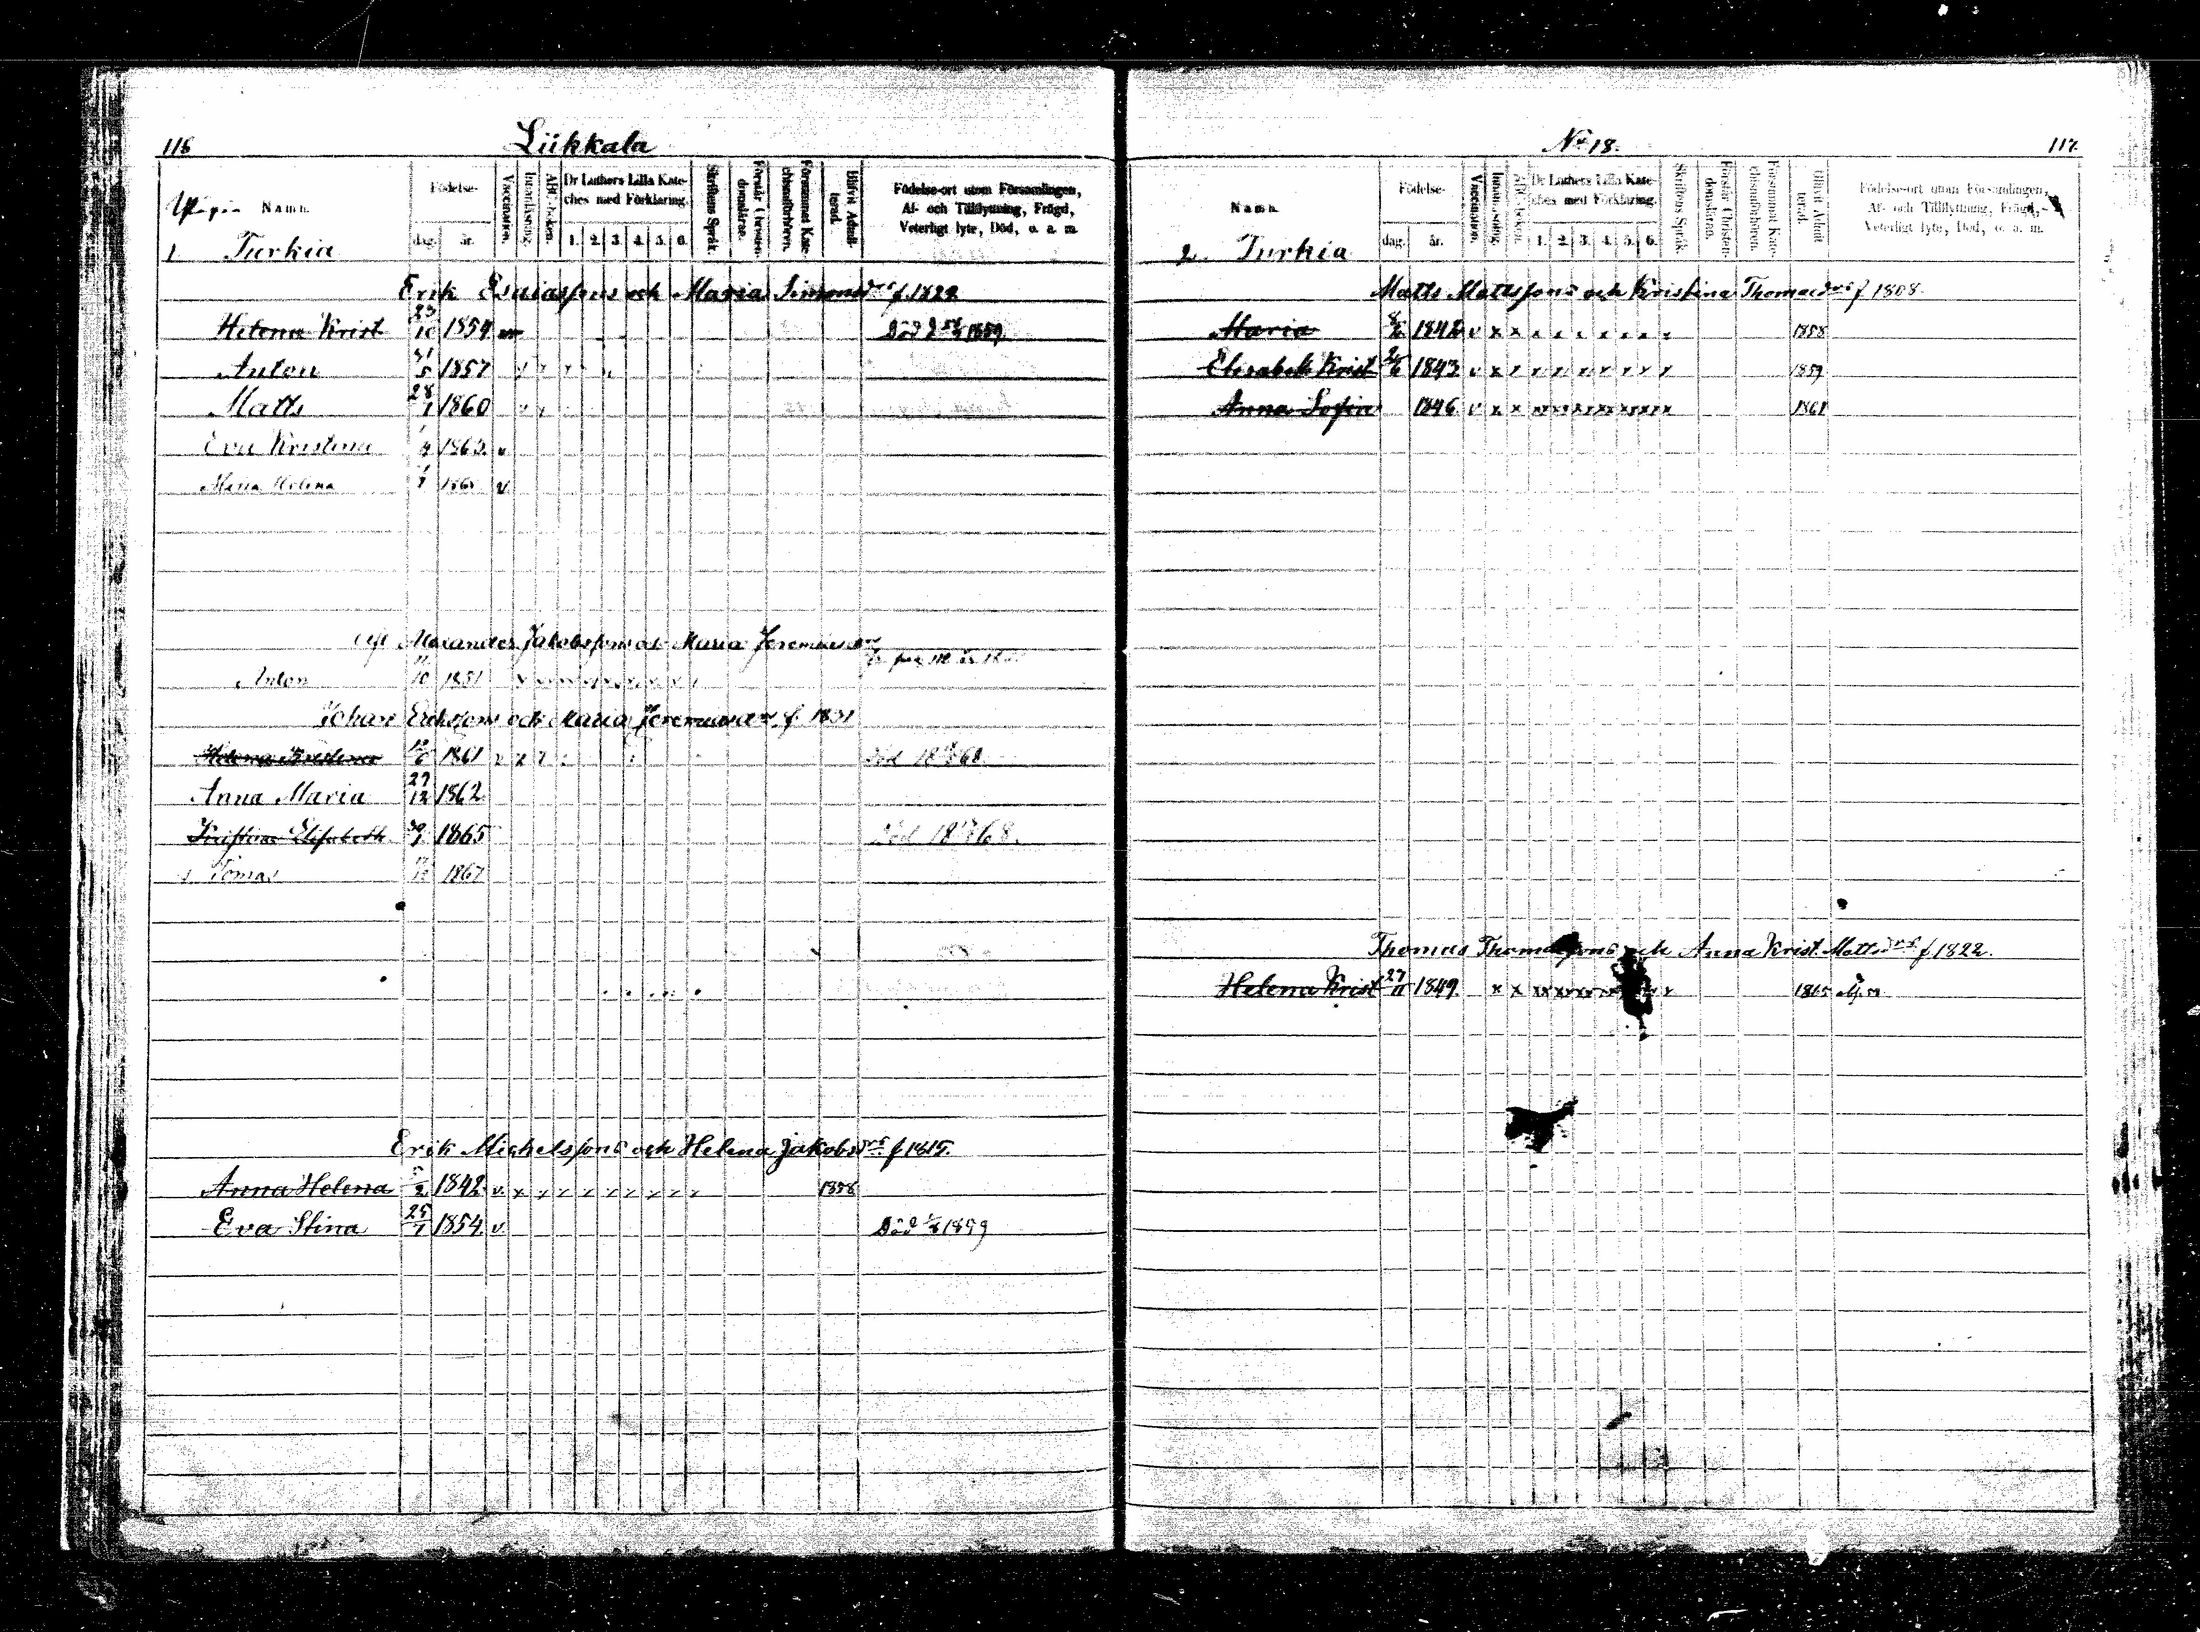 116
Liikkala
Namn.
Födelse-
dag.
år.
Vaccination.
Innanläsning.
ABC-boken.
Dr Luthers Lilla Kateches med Förklaring.
1. 2. 3. 4. 5. 6.
Skriftens Språk.
Förstår Christendomslärne.
Försummat Katechismiförhören.
Blifvit Admitterad.
Födelse-ort utom Församlingen,
Af- och Tillflyttning, Frägd,
Veterligt lyte, Död, o. a. m.
1 Turkia
Erik Esaiassons och Maria Simonsdrs f. 1822
Helena Krist 23/10 1854 Död 1859
Anton 31/5 1857
Matts 28/1 1860
Eva Kristina 1/4 1863. v
Maria Helena v
Alexander Jakobssons Maria Jeremiasdrs
Anton 10 1851
Johan Erikssons och Maria Jeremiasdrs f. 1831
Helena Kristina 1861
Anna Maria 27/12 1862
Kristina Elisabeth 30/1 1865 Död
Tomas 1867
Erik Michelssons och Helena Jakobsdrs f 1815.
Anna Helena 1842 v x x x x x x x x 1858
Eva Stina 25/1 1854. v. Död 1859
No 18.
117.
Namn.
Födelse-
dag.
år.
Vaccination.
Innanläsning.
ABC-boken.
Dr Luthers Lilla Kateches med Förklaring.
1. 2. 3. 4. 5. 6.
Skriftens Språk.
Förstår Christendomsläran.
Försummat Katechismiförhören.
Blifvit Admitterad.
Födelse-ort utom Församlingen,
Af- och Tillflyttning, Frägd,
Veterligt lyte, Död, o. a. m.
2. Turkia
Matts Mattssons och Kristina Thomasdrs f 1808.
Maria 1842 v x x x x x x x x 1858
Elisabeth Krist 1843 v x x x x x x x x 1859
Anna Sofia 1846 v x x xx xx xx xx xx xx 1861
Thomas Thomassons och Anna Krist. Mattsdrs f 1822.
Helena Krist 27/11 1849. x x xx xx xx 1865